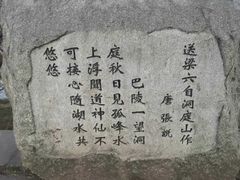 送梁六自洞庭山作
唐 張說
巴陵一望洞
庭秋日見孤峰水
上浮聞道神仙不
可接心隨湖水共
悠悠